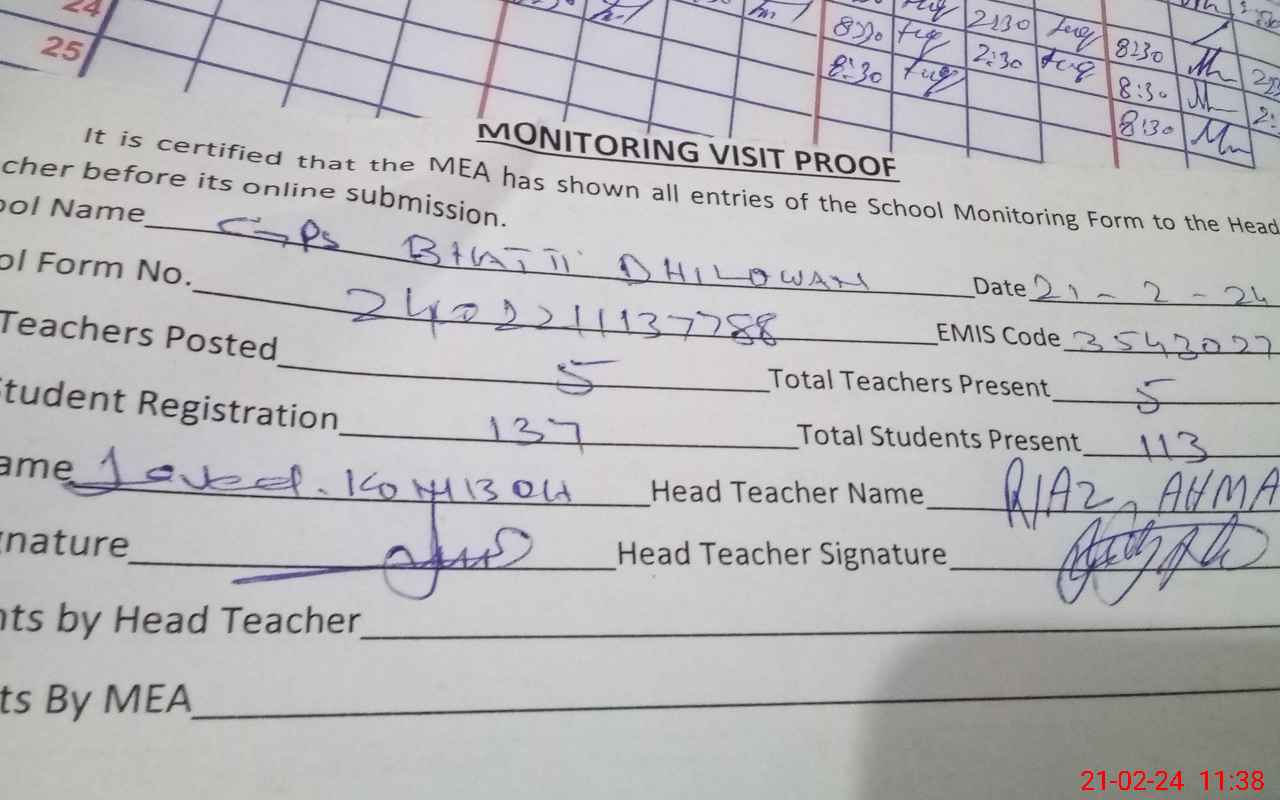 24
25
8:30 tuq 2:30 tuq 8:30
8:30 tuq 2:30 tuq 8:30
8:30
MONITORING VISIT PROOF
It is certified that the MEA has shown all entries of the School Monitoring Form to the Head
cher before its online submission.
ool Name GPS BHATTI DHILOWAN Date 21-2-24
ol Form No. 2402211137788 EMIS Code 3543027
Teachers Posted 5 Total Teachers Present 5
tudent Registration 137 Total Students Present 113
ame Javed. KOMBOH Head Teacher Name RIAZ AHMA
nature Head Teacher Signature
nts by Head Teacher
ts By MEA
21-02-24 11:38